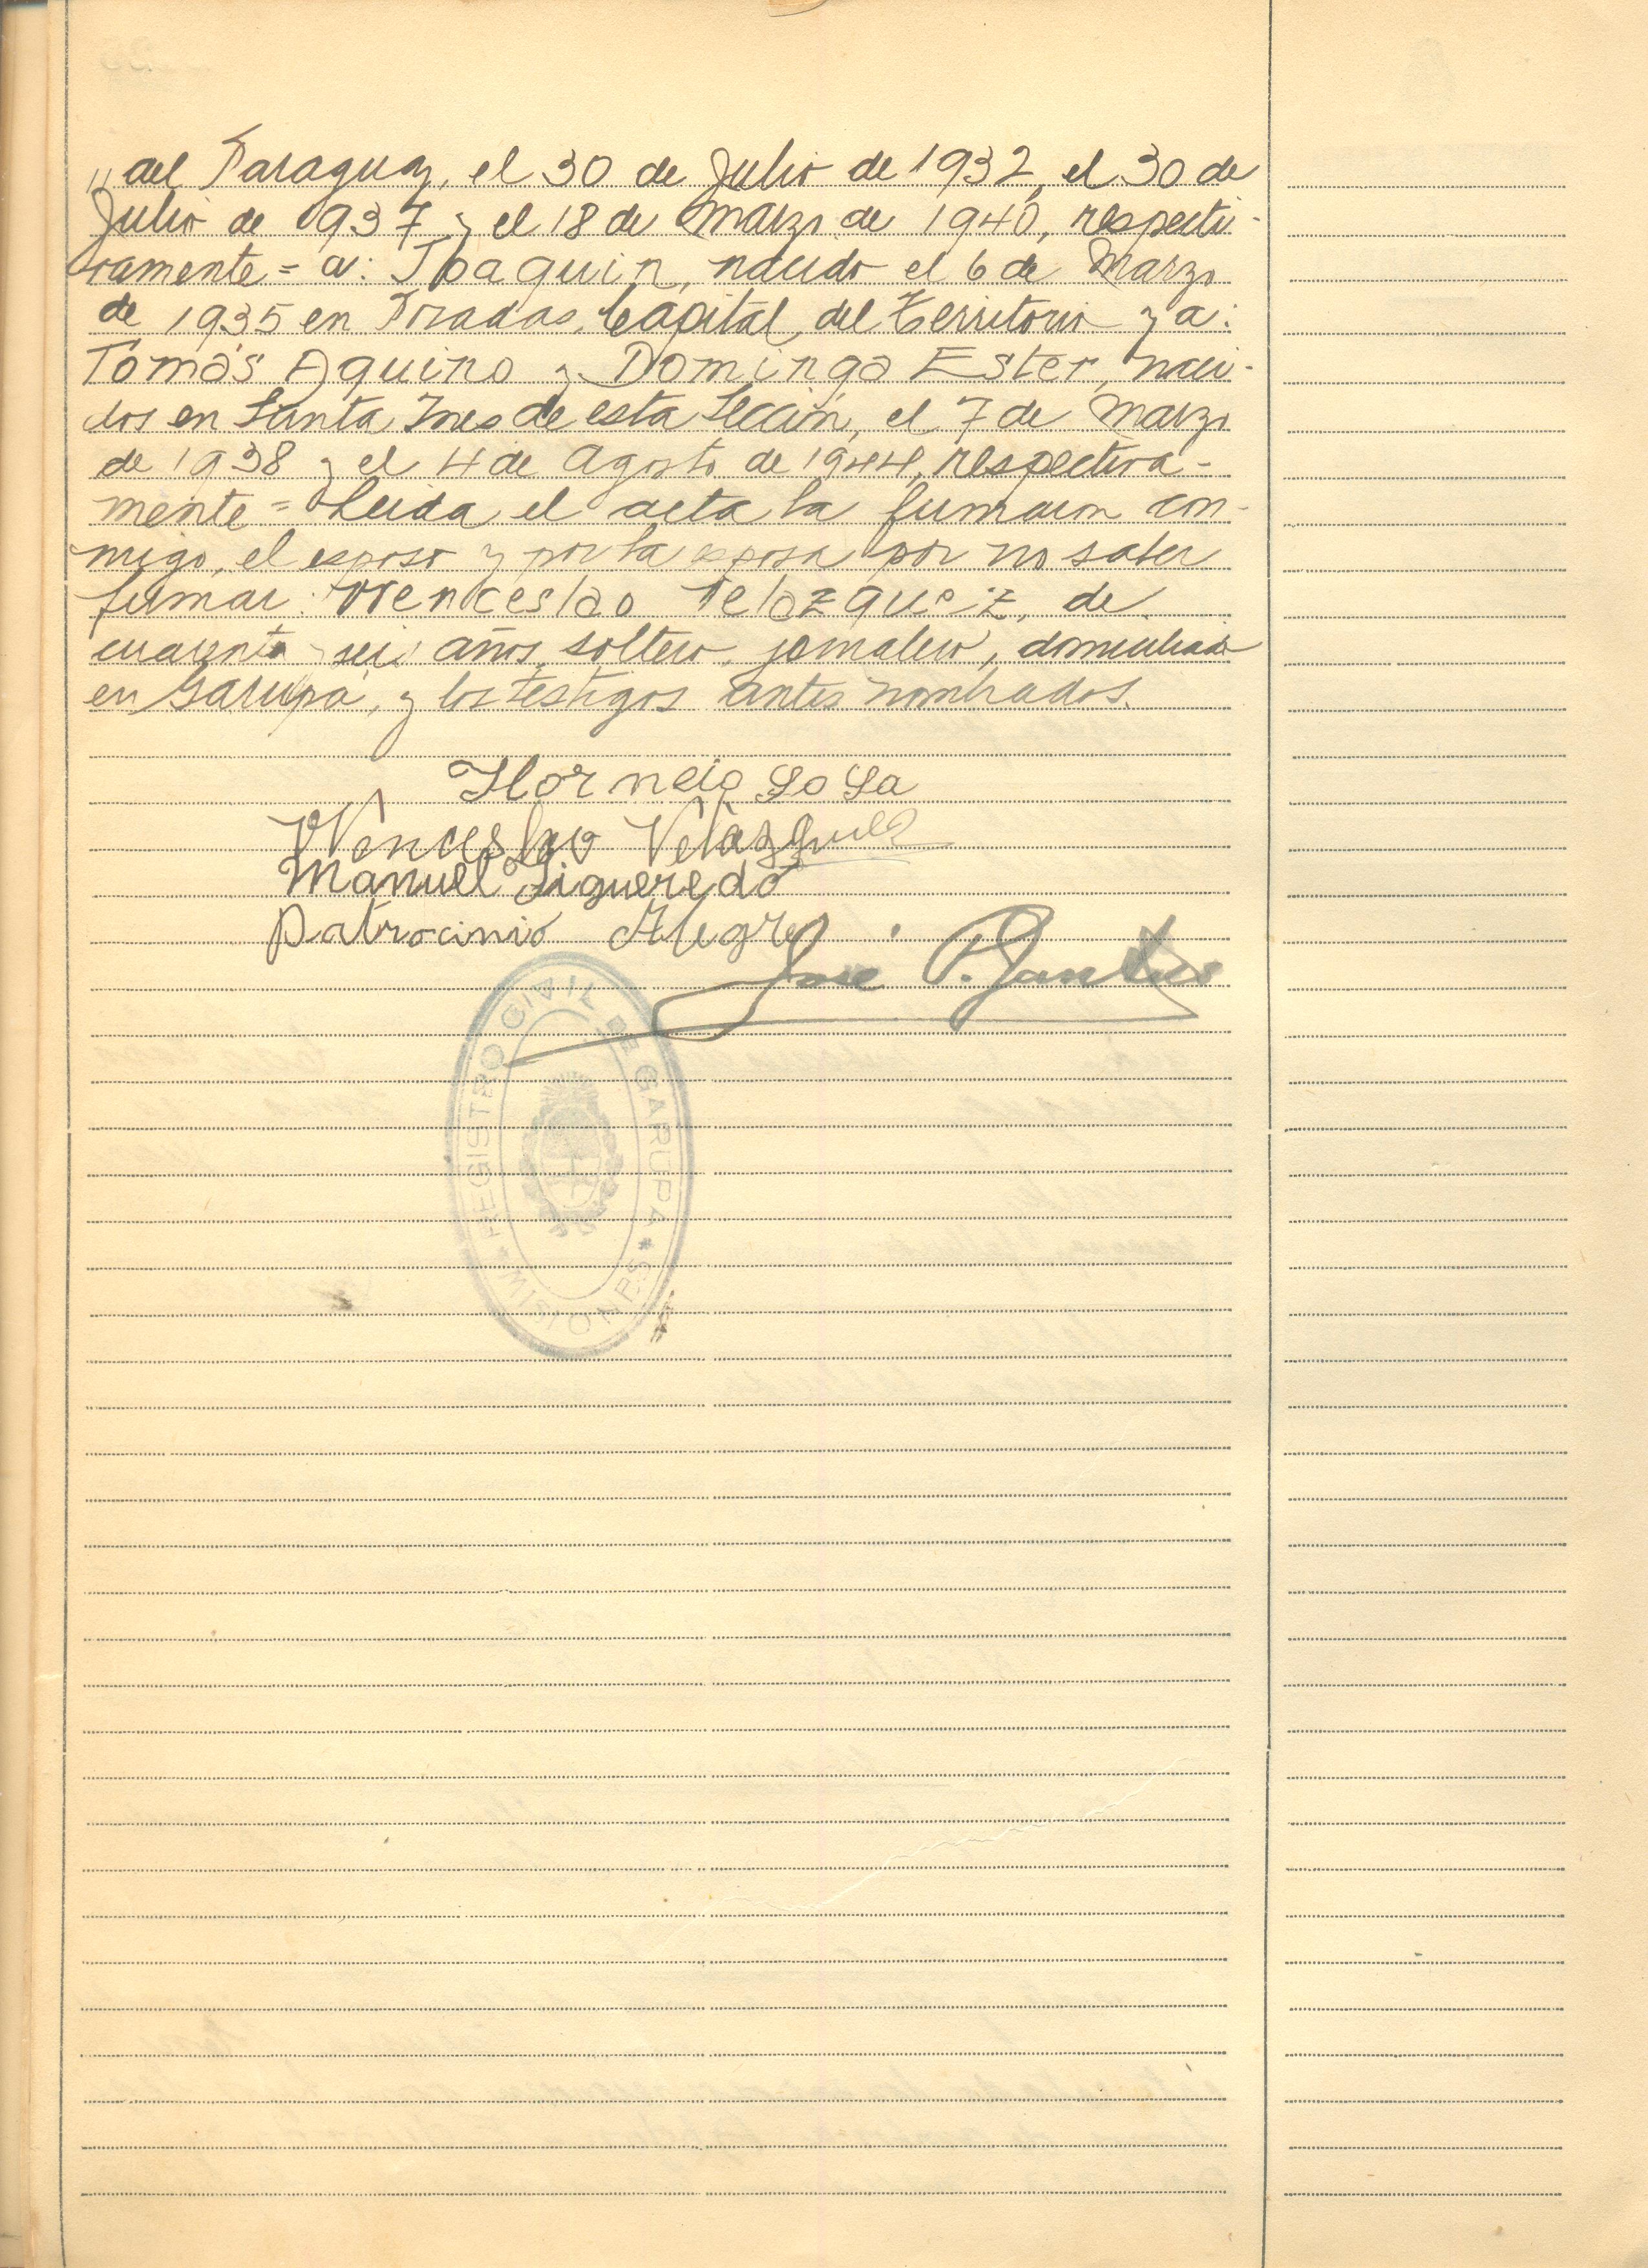 ,, del Paraguay, el 30 de Julio de 1932, el 30 de
Julio de 1937 y el 18 de Marzo de 1940, respecti-
vamente = a: Joaquin, nacido el 6 de Marzo
de 1935 en Posadas, Capital del Territorio y a:
Tomás Aquino y Dominga Ester, naci-
dos en Santa Ines de esta Sección, el 7 de Marzo
de 1938 y el 4 de Agosto de 1944, respectiva-
mente = Leida el acta la firmaron con-
migo, el esposo y por la esposa por no saber
firmar: Wenceslao Velazquez, de
cuarenta y seis años, soltero, jornalero, domiciliado
en Garupá, y los testigos antes nombrados.
Wenceslao Velázquez
Manuel Figueredo
Patrocinio Alegre
Jose
REGISTRO CIVIL DE GARUPA * MISIONES *